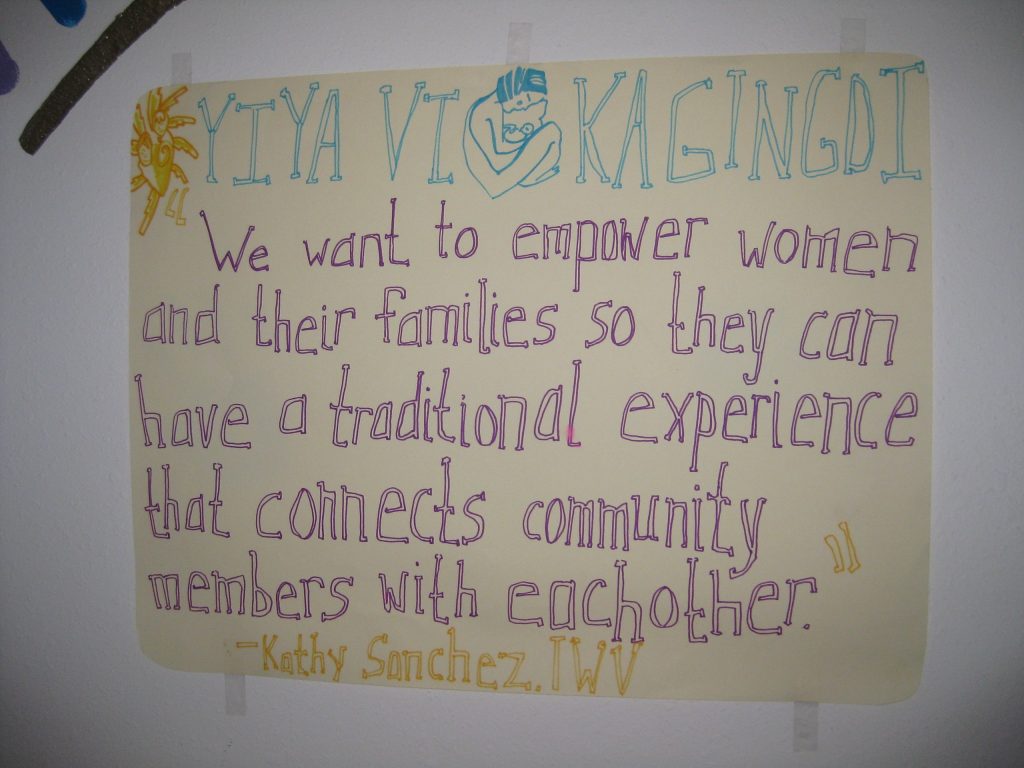 YIYA VI KAGINGDI
"We want to empower women
and their families so they can
have a traditional experience
that connects community
members with eachother."
-Kathy Sanchez, IWV